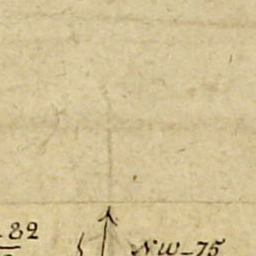 82
NW-75